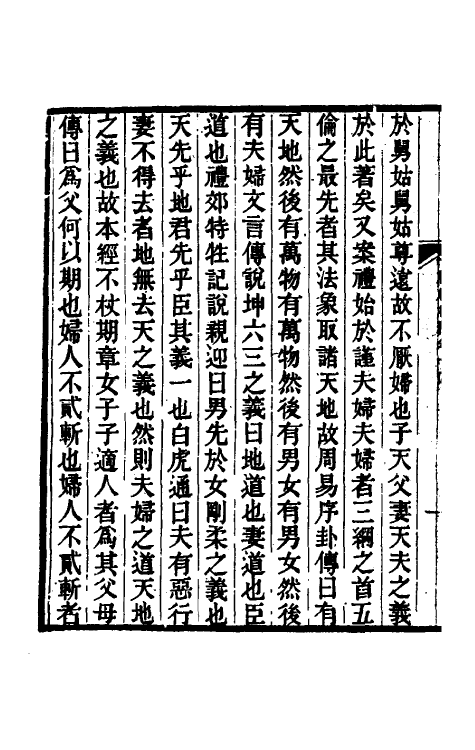 於舅姑舅姑尊遠故不厭婦也子天父妻天夫之義
於此著矣又案禮始於謹夫婦夫婦者三綱之首五
倫之最先者其法象取諸天地故周易序卦傳曰有
天地然後有萬物有萬物然後有男女有男女然後
有夫婦文言傳說坤六三之義曰地道也妻道也臣
道也禮郊特牲記說親迎曰男先於女剛柔之義也
天先乎地君先乎臣其義一也白虎通曰夫有惡行
妻不得去者地無去天之義也然則夫婦之道天地
之義也故本經不杖期章女子子適人者爲其父母
傳曰爲父何以期也婦人不貳斬也婦人不貳斬者